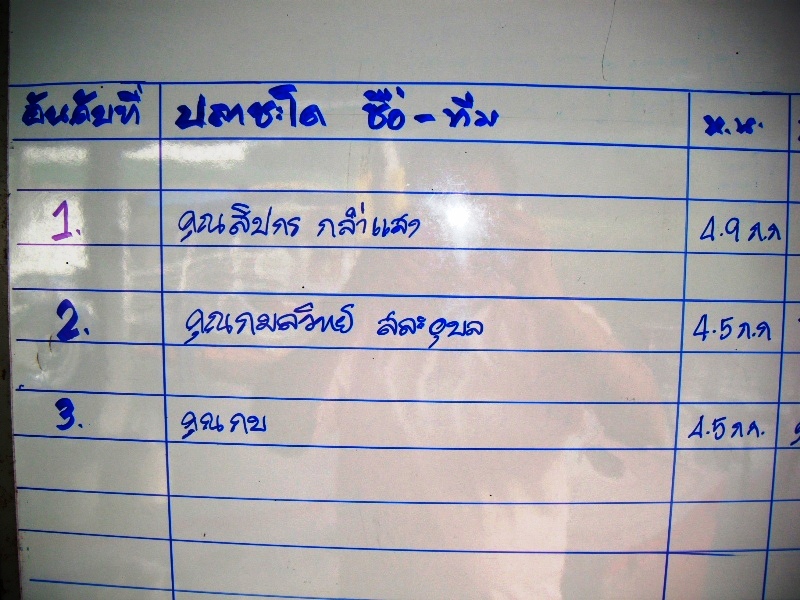 อันดับที่ ปลาชะโด ชื่อ-ทีม น.น.
1. คุณสิปกร กล่ำแสง 4.9 ก.ก
2. คุณกมลวิทย์ สละอุบล 4.5 ก.ก
3. คุณกบ 4.5 ก.ก.